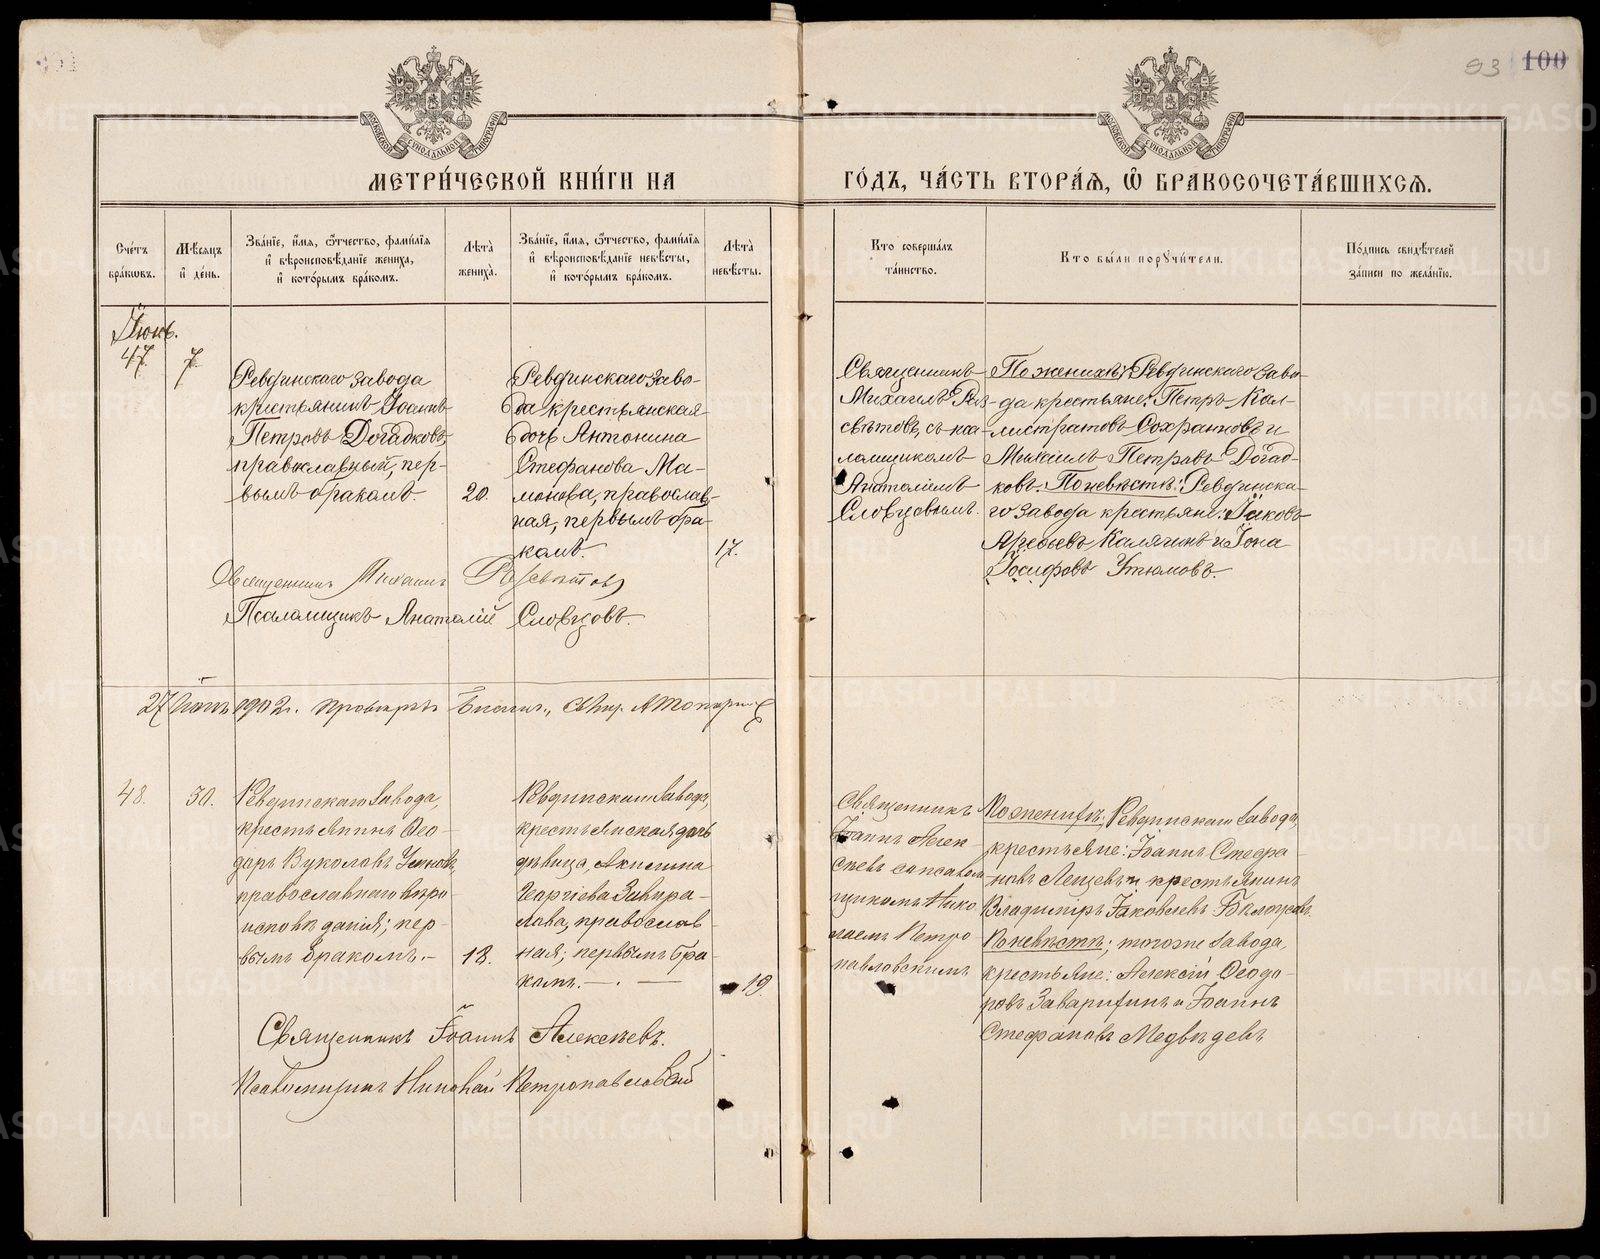 93 100
МОСКОВСКОЙ СУНОДАЛЬНОЙ ТИПОГРАФІИ
МОСКОВСКОЙ СУНОДАЛЬНОЙ ТИПОГРАФІИ
МЕТРИ́ЧЕСКОЙ КНИ́ГИ НА
ГО́ДЪ, ЧА́СТЬ ВТОРА́Я, Ѡ БРАКОСОЧЕТА́ВШИХСЯ.
Сче́тъ бра́кѡвъ.
Мѣ́сяцъ и҆ де́нь.
Зва́нїе, и҆́мя, ѻ҆́тчество, фами́лїя
и҆ вѣроисповѣ́данїе жениха̀,
и҆ кото́рымъ бра́комъ.
Лѣ́та жениха̀.
Зва́нїе, и҆́мя, ѻ҆́тчество, фами́лїя
и҆ вѣроисповѣ́данїе невѣ́сты,
и҆ кото́рымъ бра́комъ.
Лѣ́та невѣ́сты.
Кто̀ соверша́лъ
та́инство.
Кто̀ бы́ли порꙋчи́тели.
По́дпись свидѣ́телей
за́писи по жела́нїю.
Іюнь.
47. 7.
Ревдинскаго завода
крестьянинъ Іоаннъ
Петровъ Догадковъ,
православный, пер-
вымъ бракомъ.
20.
Ревдинскаго заво-
да крестьянская
дочь Антонина
Стефанова Ма-
монова, православ-
ная, первымъ бра-
комъ.
17.
Священникъ
Михаилъ Раз-
свѣтовъ, съ пса-
ломщикомъ
Анатоліемъ
Словцовымъ.
По женихѣ: Ревдинскаго заво-
да крестьяне: Петръ Кал-
листратовъ Сохранновъ и
Михаилъ Петровъ Догад-
ковъ. По невѣстѣ: Ревдинска-
го завода крестьяне: Іаковъ
Арефьевъ Калягинъ и Іона
Іосифовъ Утюмовъ.
Священникъ Михаилъ Разсвѣтовъ
Псаломщикъ Анатолій Словцовъ.
27 Іюня 1902 г. провѣрялъ
48. 30.
Ревдинскаго завода,
крестьянинъ Ѳео-
доръ Вуколовъ
православнаго вѣро
исповѣданія; пер-
вымъ бракомъ.-
18.
Ревдинскаго завода,
крестьянская дочь
дѣвица, Акилина
Георгіева
православ
ная; первымъ бра-
комъ.-.-
19.
Священникъ
Іоаннъ Алек-
сѣевъ съ псалом
щикомъ Нико
лаемъ Петро-
павловскимъ
По женихѣ; Ревдинскаго завода,
крестьяне: Іоаннъ Стефа-
новъ Лещевъ и крестьянинъ
Владиміръ Іаковлевъ Бѣлоусовъ.
По невѣстѣ; тогоже завода,
крестьяне: Алексій Ѳеодо-
ровъ Заварихинъ и Іоаннъ
Стефановъ Медвѣдевъ
Священникъ Іоаннъ Алексѣевъ.
Псаломщикъ Николай Петропавловскій